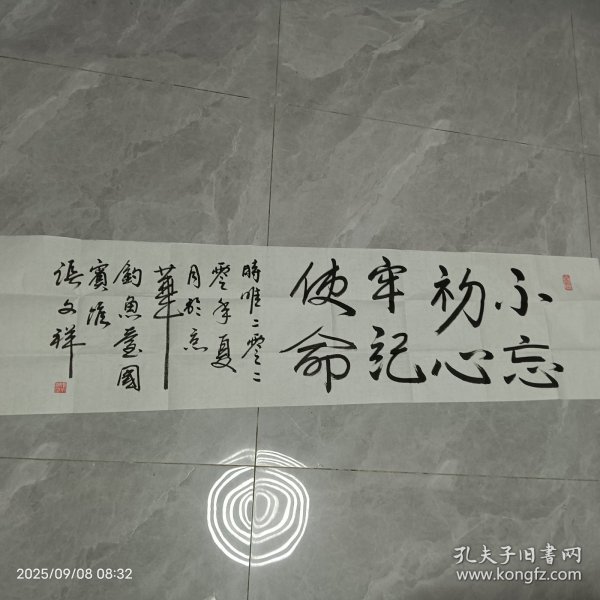 不忘
初心
牢记
使命
時唯二零二
零年夏
月於京
華
釣魚臺國
賓館
張文祥
2025/09/08 08:32
孔夫子旧书网
www.kongfz.com